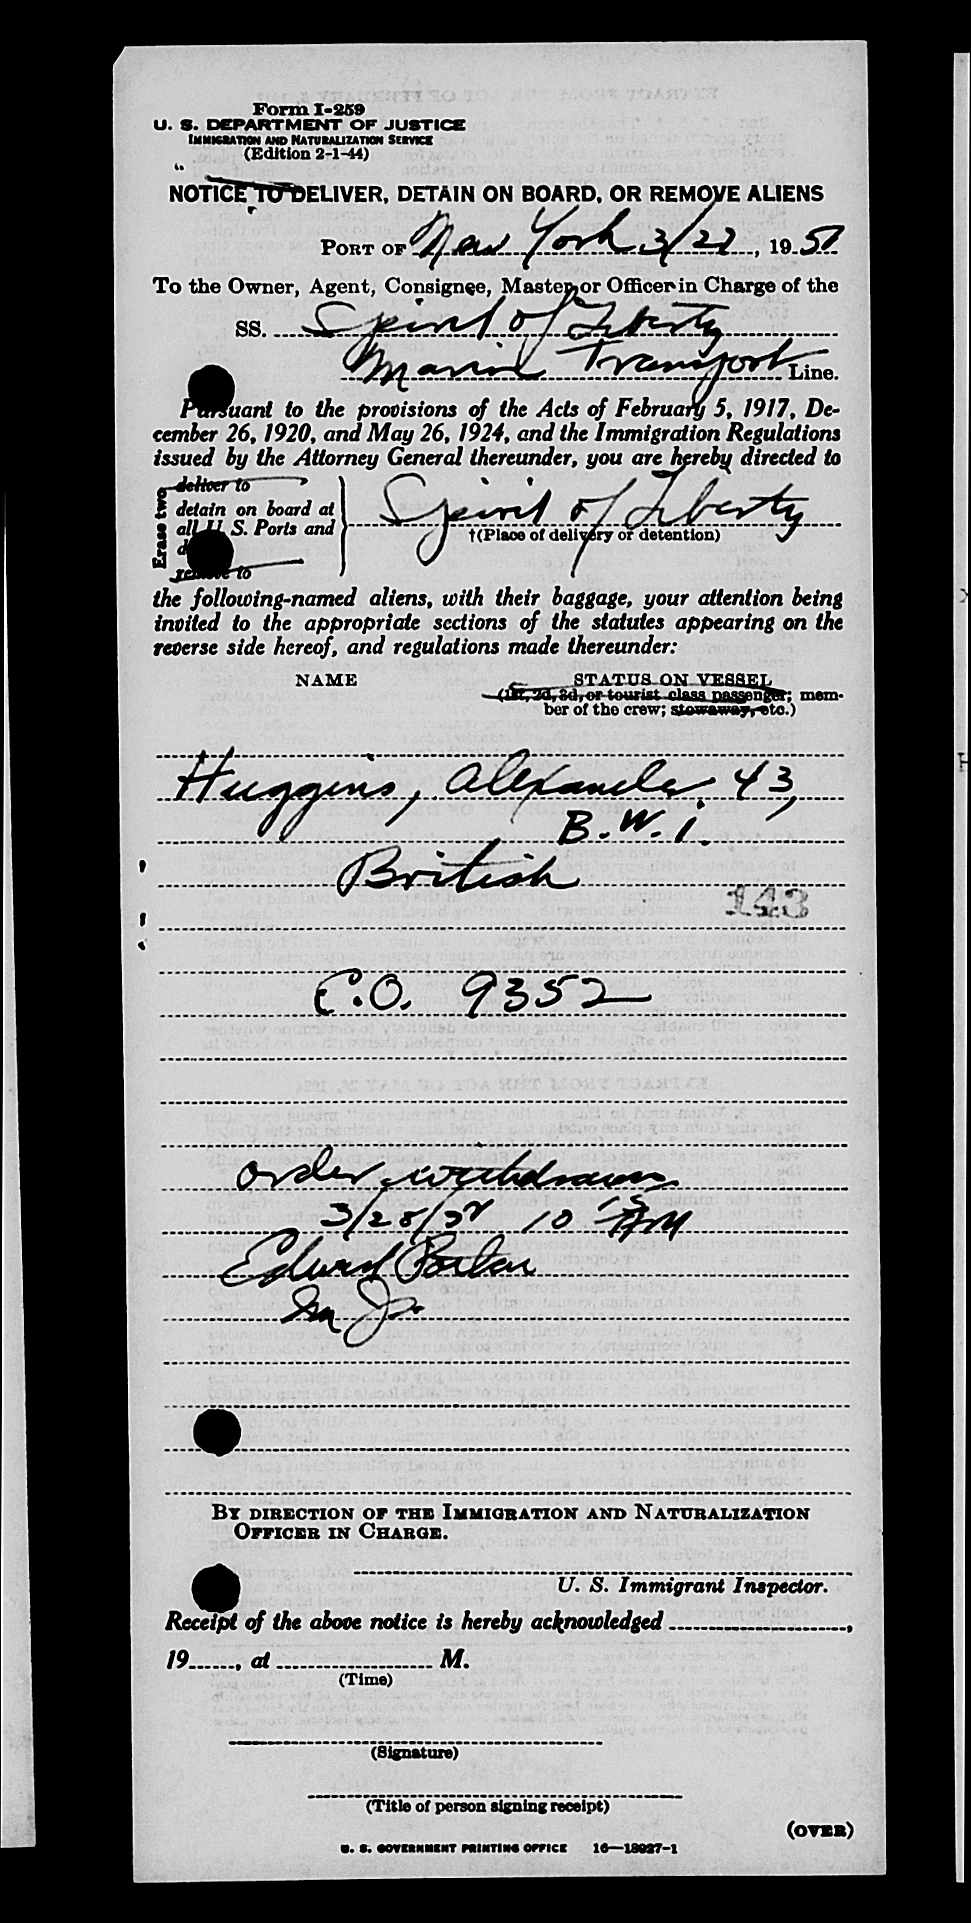 Form I-259
U. S. DEPARTMENT OF JUSTICE
IMMIGRATION AND NATURALIZATION SERVICE
(Edition 2-1-44)
NOTICE TO DELIVER, DETAIN ON BOARD, OR REMOVE ALIENS
PORT OF New York 3/22, 1951
To the Owner, Agent, Consignee, Master or Officer in Charge of the
SS. Spirit of Liberty
Marine Transport Line.
Pursuant to the provisions of the Acts of February 5, 1917, De-
cember 26, 1920, and May 26, 1924, and the Immigration Regulations
issued by the Attorney General thereunder, you are hereby directed to
Erase two
deliver to
detain on board at
all U. S. Ports and
remove to
Spirit of Liberty
†(Place of delivery or detention)
the following-named aliens, with their baggage, your attention being
invited to the appropriate sections of the statutes appearing on the
reverse side hereof, and regulations made thereunder:
NAME STATUS ON VESSEL
(1st, 2d, 3d, or tourist class passenger; mem-
ber of the crew; stowaway, etc.)
Huggins, Alexander 43,
B.W.I.
British
143
C.O. 9352
order withdrawn
10 15 AM
Edward
BY DIRECTION OF THE IMMIGRATION AND NATURALIZATION
OFFICER IN CHARGE.
U. S. Immigrant Inspector.
Receipt of the above notice is hereby acknowledged ,
19 , at M.
(Time)
(Signature)
(Title of person signing receipt)
(OVER)
U. S. GOVERNMENT PRINTING OFFICE 16—18927-1